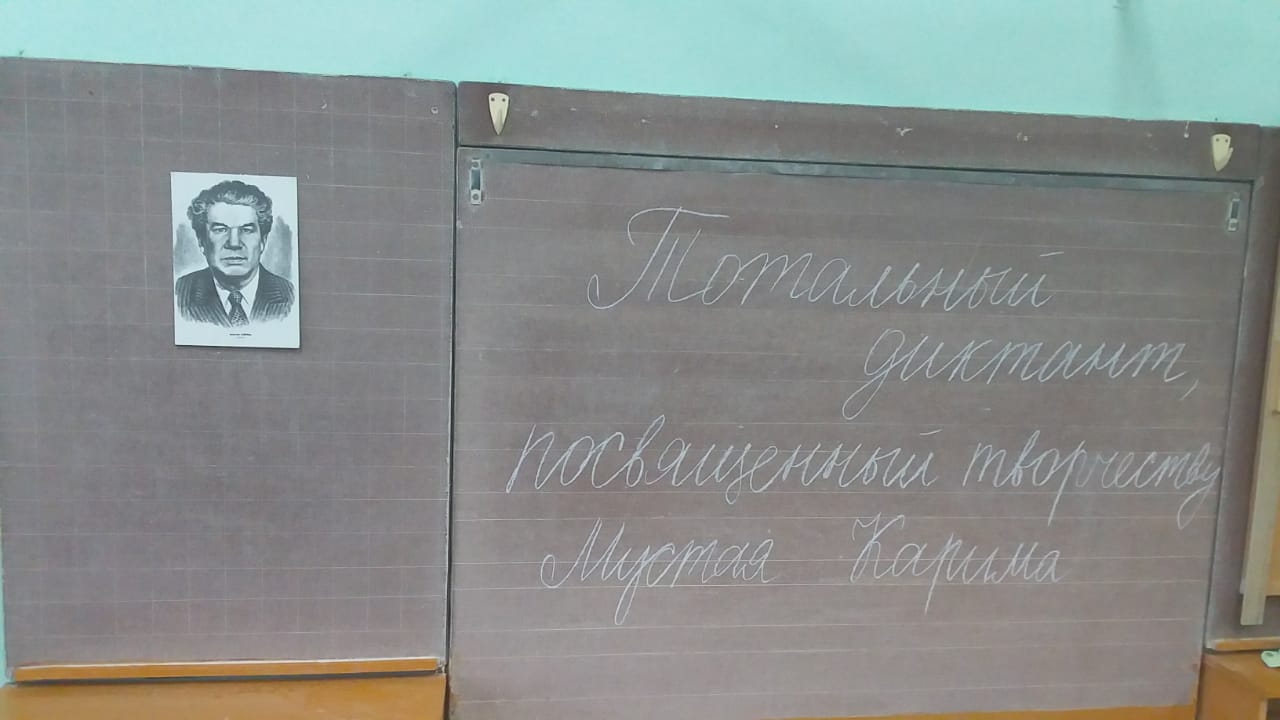 Тотальный
диктант,
посвященный творчеству
Мустая Карима